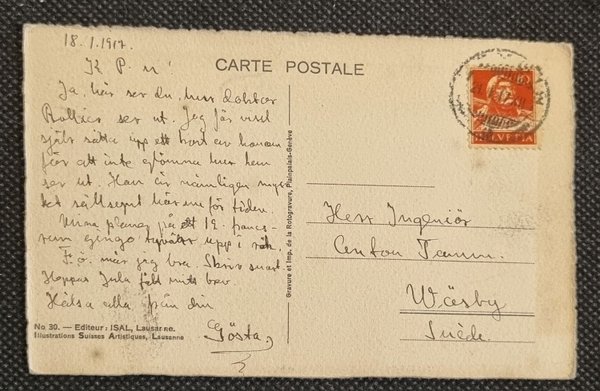 18.1.1917.
CARTE POSTALE
K P
Ja, här ser du, hur doktor
Rollier ser ut. Jag får visst
själv sätta upp ett kort av honom
för att inte glömma hur han
ser ut. Han är nämligen myc-
ket sällsynt här för tiden.
Mina planer på ett 12. francs-
rum gingo upp i rök.
F. ö. mår jag bra. Skriv snart.
Hoppas Jula fått mitt brev.
Hälsa alla från din
Gösta
No 30. — Editeur: ISAL, Lausanne.
Illustrations Suisses Artistiques, Lausanne
Gravure et Imp. de la Rotogravure, Plainpalais-Genève
10
HELVETIA
Herr Ingeniör
Anton Tamm.
Wäsby
Suède.